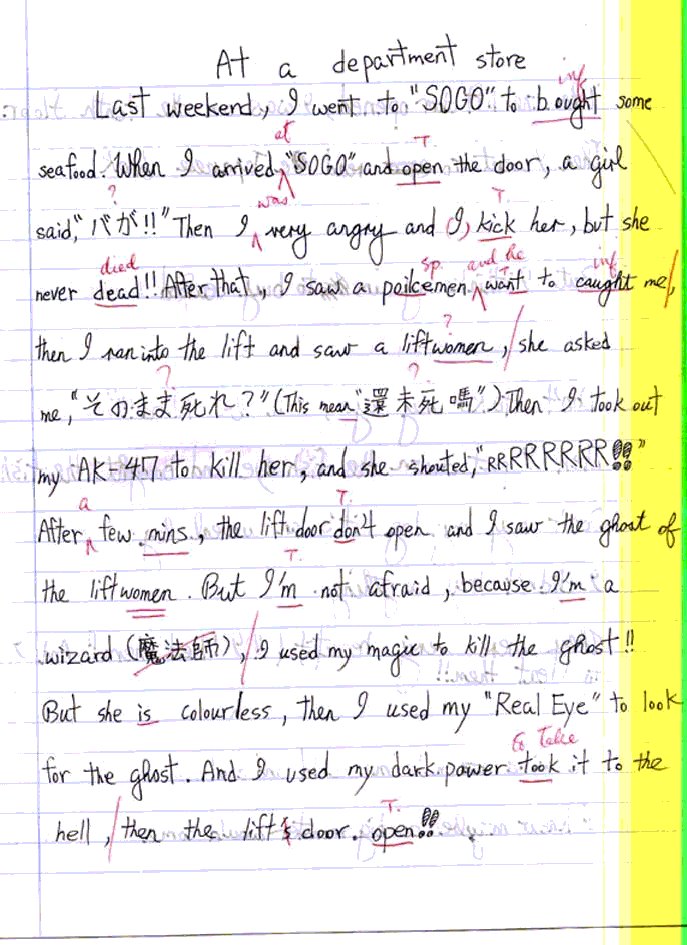 At a department store
inf
Last weekend, I went to "SOGO" to bought some
at T
seafood. When I arrived "SOGO" and open the door, a girl
? was T
said, "バが!!" Then I very angry and I, kick her, but she
died sp. and he T inf
never dead!! After that, I saw a poilcemen want to caught me,
?
then I ran into the lift and saw a liftwomen, she asked
? ?
me, "そのまま死れ?" (This mean "還未死嗎") Then I took out
my AK-47 to kill her, and she shouted, "RRRRRRRR!!"
a T.
After few mins, the lift door don't open and I saw the ghost of
T.
the liftwomen. But I'm not afraid, because I'm a
wizard (魔法師), I used my magic to kill the ghost!!
But she is colourless, then I used my "Real Eye" to look
to take
for the ghost. And I used my dark power took it to the
T.
hell, then the lift's door. open!!.